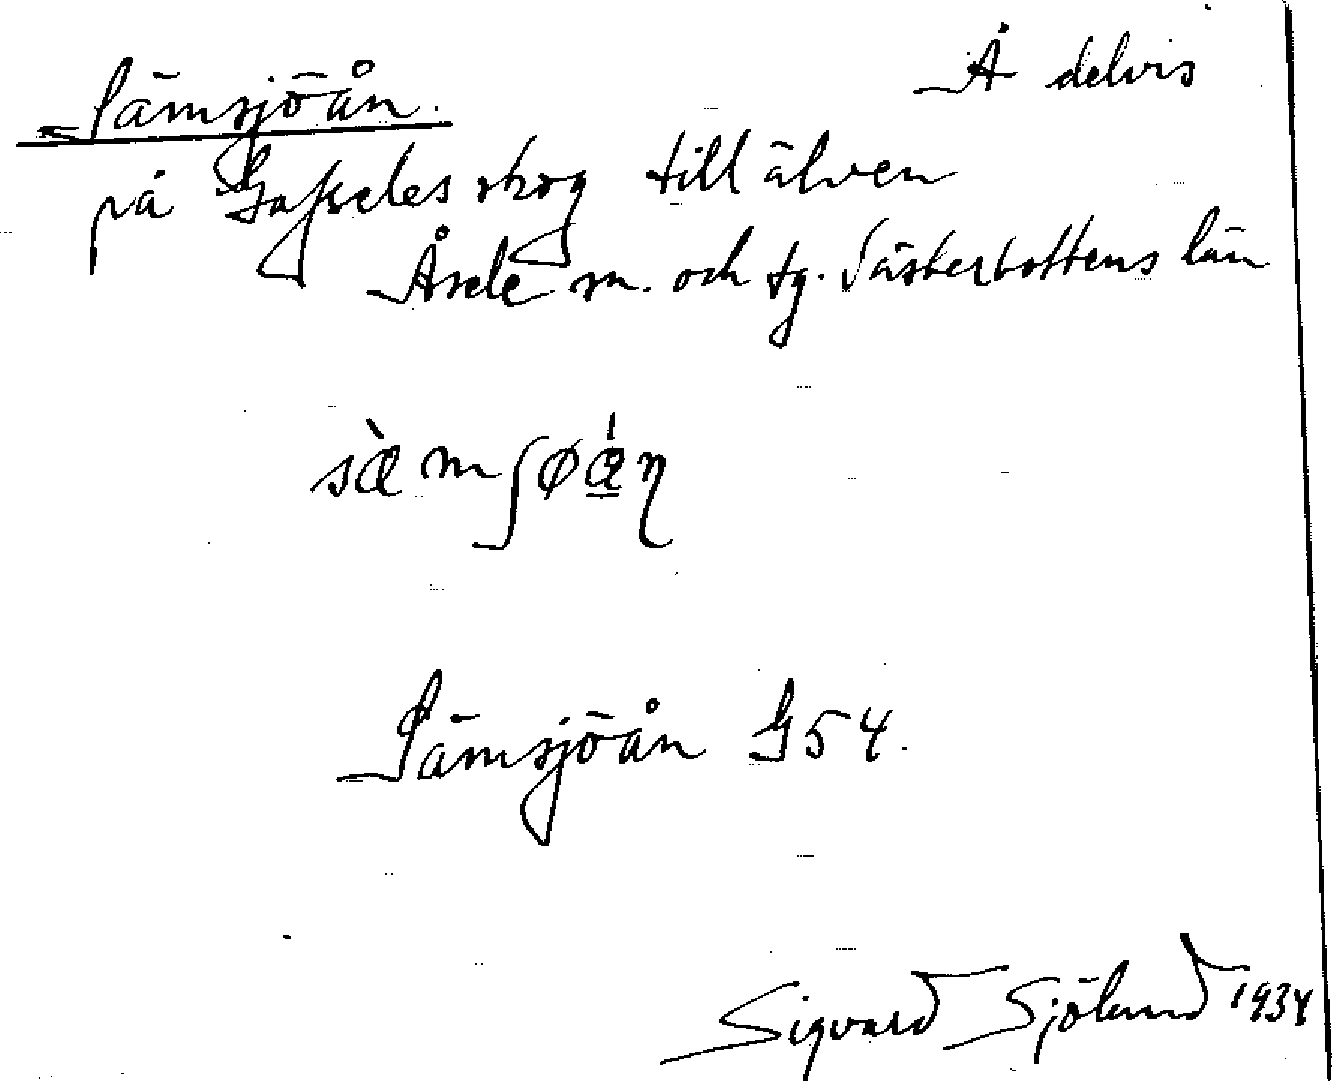 Sämsjöån. Å delvis
på Gafseles skog till älven
Åsele sn. och tg. Västerbottens län
Sämsjöån G54.
Sigvard Sjölund 1934